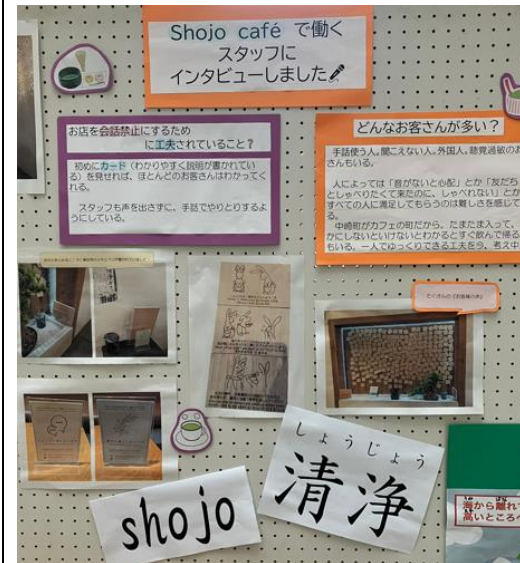 Shojo café で働く
スタッフに
インタビューしました
お店を会話禁止にするため
に工夫されていること？
初めにカード（わかりやすく説明が書かれてい
る）を見せれば、ほとんどのお客さんはわかってく
れる。
スタッフも声を出さずに、手話でやりとりするよ
うにしている。
どんなお客さんが多い？
手話使う人。聞こえない人。外国人。聴覚過敏のお
さんもいる。
人によっては「音がないと心配」とか「友だち
としゃべりたくて来たのに、しゃべれない」とか
すべての人に満足してもらうのは難しさを感じて
る。
中崎町がカフェの町だから、たまたま入って、
かにしないといけないとわかるとすぐ飲んで帰る
もいる。一人でゆっくりできる工夫を、考え中
たくさんの《お客様の声》
しょうじょう
清浄
shojo
海から離れて
高いところへ